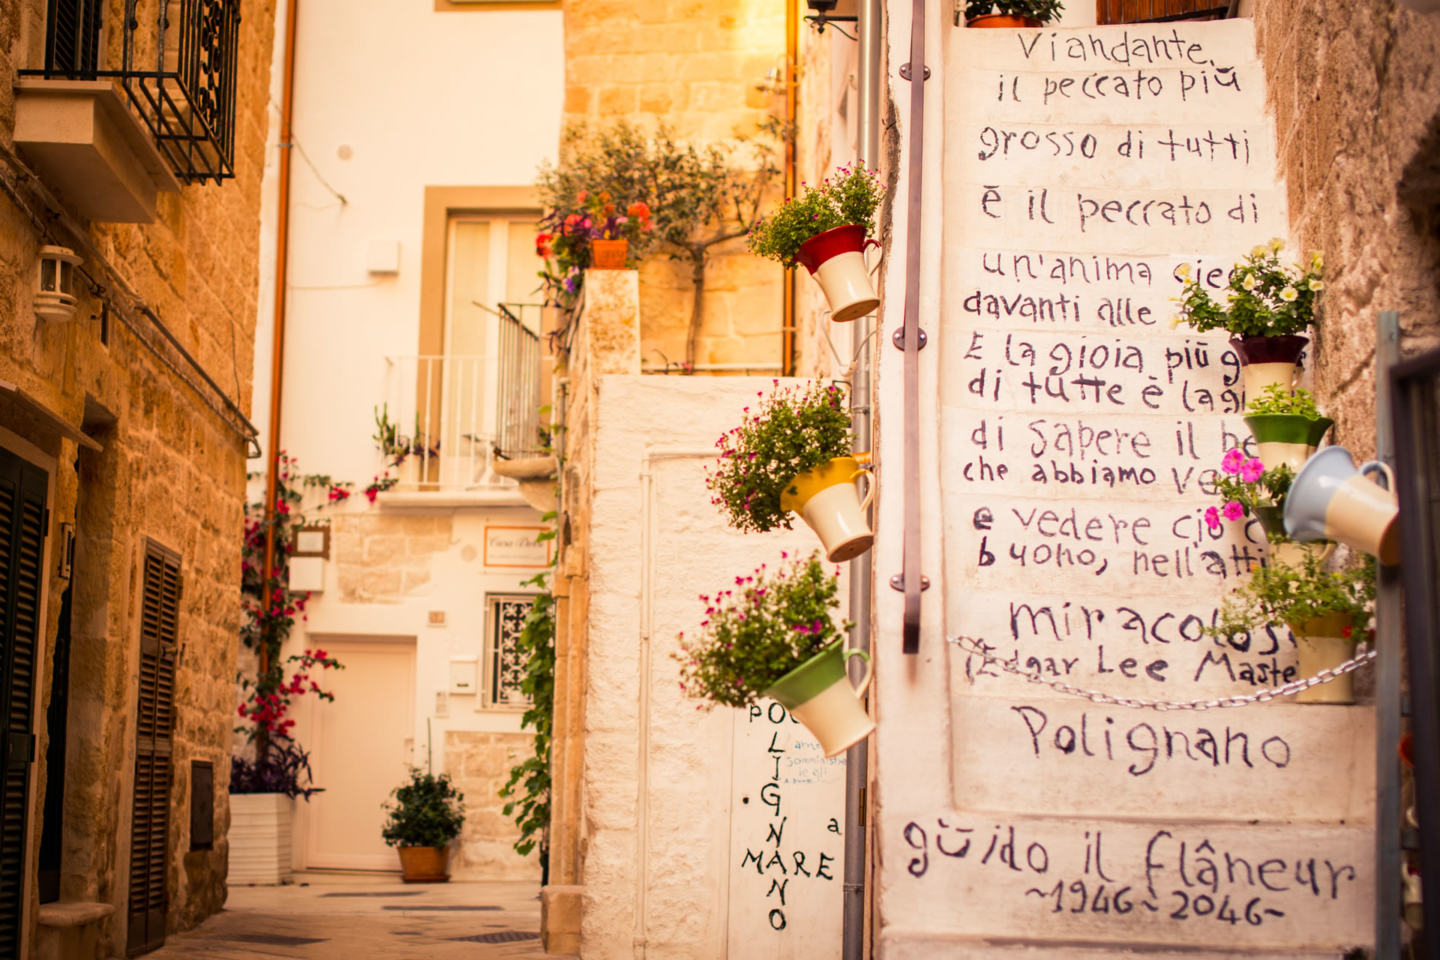 Viandante,
il peccato più
grosso di tutti
è il peccato di
un'anima
davanti alle
E la gioia più
di tutte è la
di sapere il
che abbiamo
e vedere ciò
buono, nell'
miracoloso
(Edgar Lee
Polignano
guido il flâneur
~1946~2046~
POLIGNANO
a
MARE
Casa